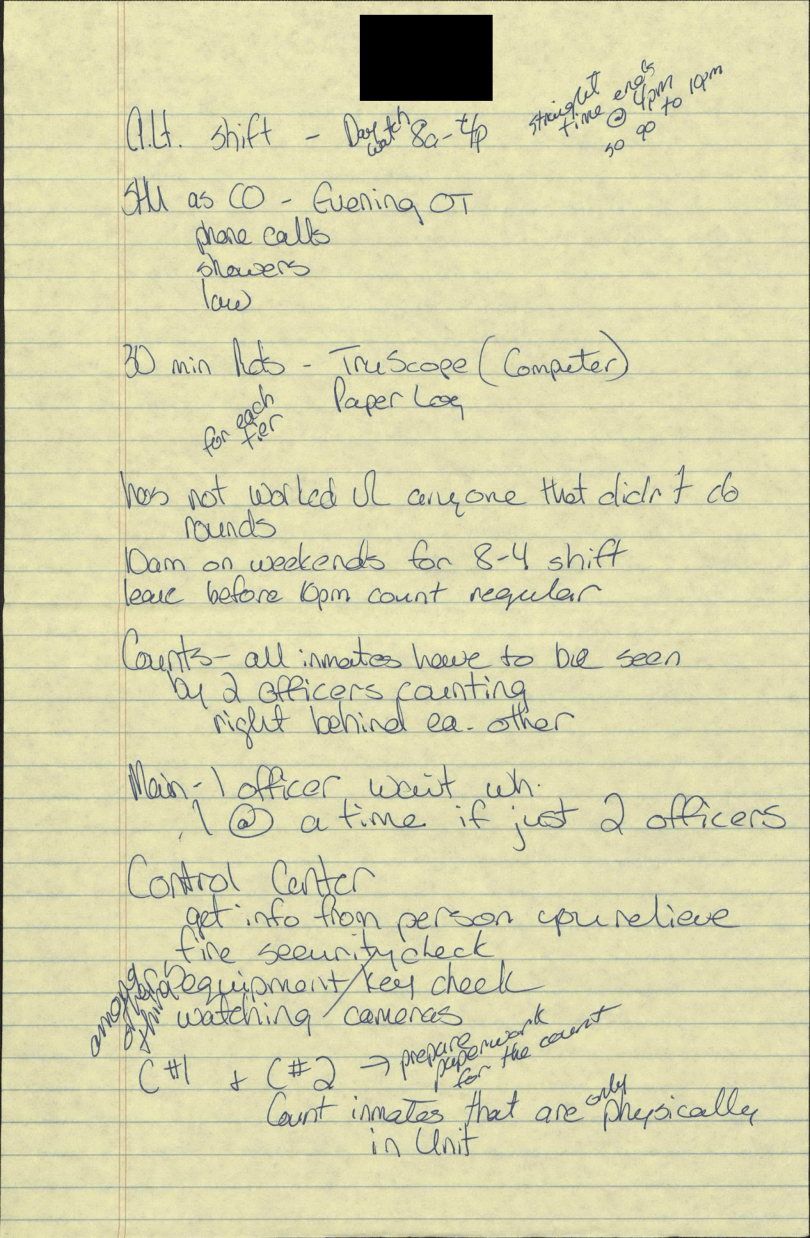 A.Lt. shift - Day watch 8a-4p straight time ends @ 4pm so go to 10pm
SHU as CO - Evening OT
phone calls
showers
law
30 min Rds - TruScope (Computer)
for each tier Paper Log
has not worked w anyone that didn't do
rounds
10am on weekends for 8-4 shift
leave before 10pm count regular
Counts - all inmates have to be seen
by 2 officers counting
right behind ea. other
Main - 1 officer wait wh.
1 @ a time if just 2 officers
Control Center
get info from person you relieve
fire security check
equipment/key check
among other things watching cameras
C #1 + C #2 → prepare paperwork for the count
Count inmates that are only physically
in Unit